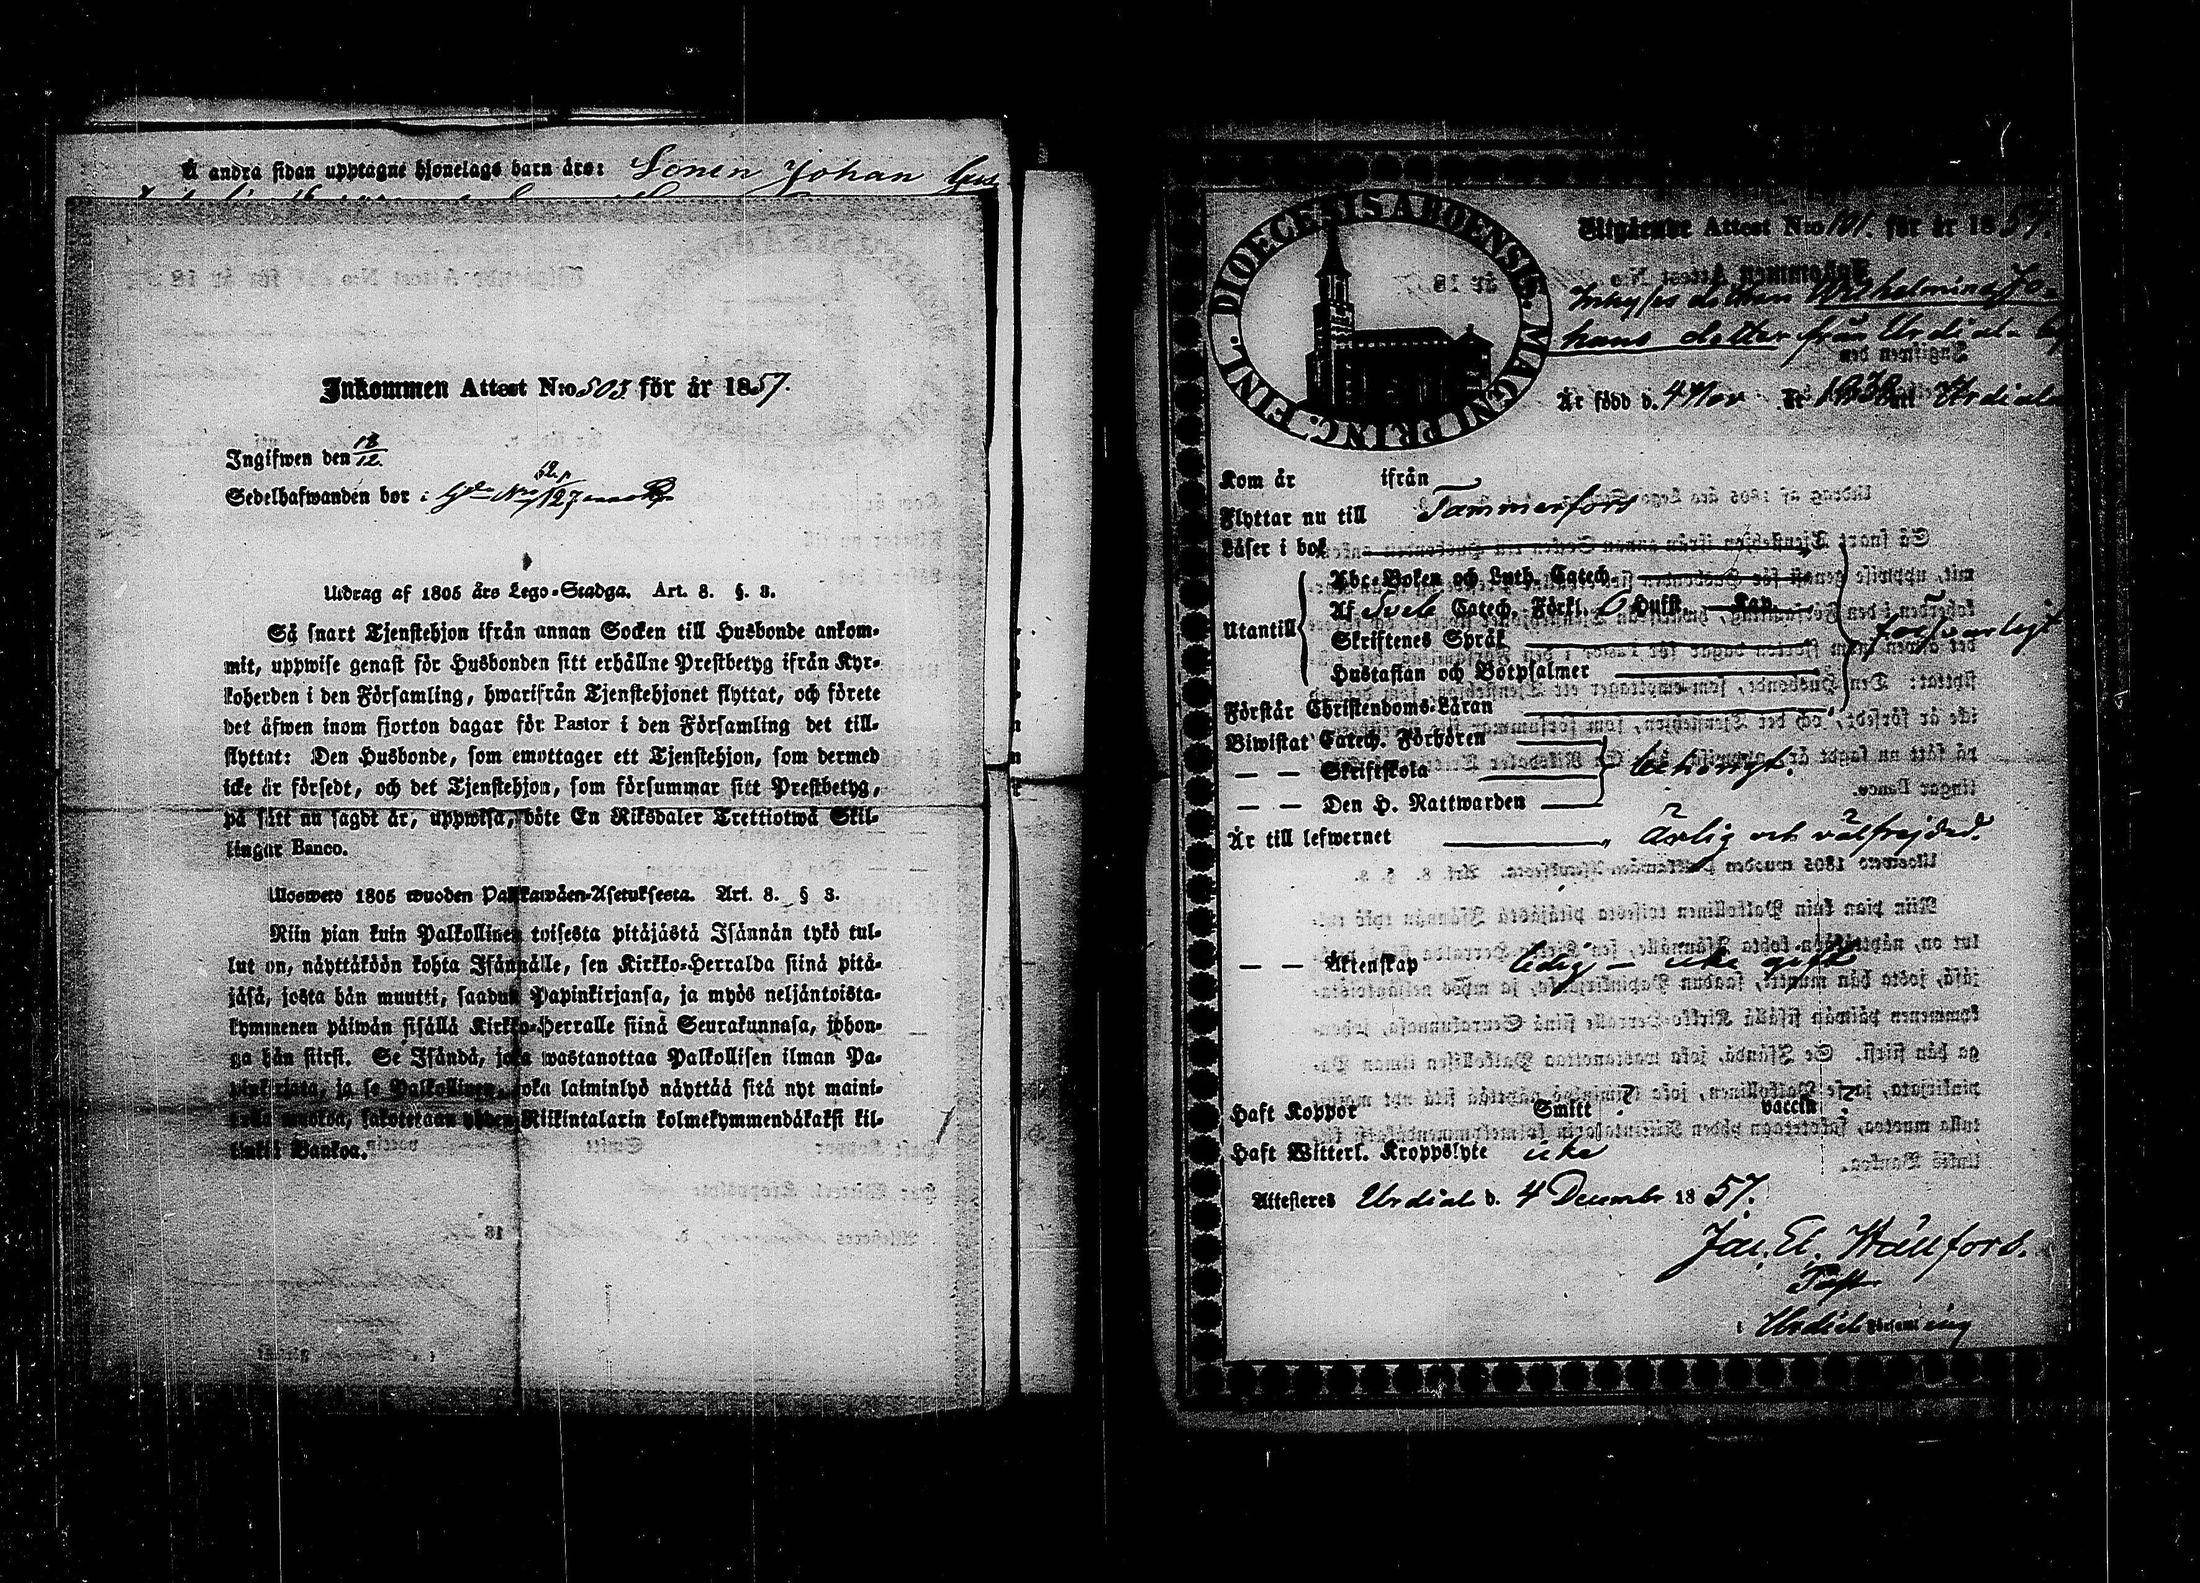 Å andra sidan upptagne hjonelags barn äro: Sonen Johan
Inkommen Attest N:o 503 för år 1857.
Ingifwen den 18/12.
Sedelhafwanden bor i Gd No 127
Utdrag af 1805 års Lego-Stadga. Art. 8. §. 3.
Så snart Tjenstehjon ifrån annan Socken till Husbonde ankom-
mit, uppwise genast för Husbonden sitt erhållne Prestbetyg ifrån Kyr-
koherden i den Församling, hwarifrån Tjenstehjonet flyttat, och förete
det äfwen inom fjorton dagar för Pastor i den Församling det till-
flyttat: Den Husbonde, som emottager ett Tjenstehjon, som dermed
icke är försedt, och det Tjenstehjon, som försummar sitt Prestbetyg,
på sätt nu sagdt är, uppwisa, böte En Riksdaler Trettiotwå Skil-
lingar Banco.
Ulosweto 1805 wuoden Palkkawäen-Asetuksesta. Art. 8. § 3.
Niin pian kuin Palkollinen toisesta pitäjästä Isännän tykö tul-
lut on, näyttäköön kohta Isännälle, sen Kirkko-Herralda siinä pitä-
jäsä, josta hän muutti, saadun Papinkirjansa, ja myös neljäntoista-
kymmenen päiwän sisällä Kirkko-Herralle siinä Seurakunnasa, johon-
ga hän siirsi. Se Isändä, joka wastanottaa Palkollisen ilman Pa-
pinkirjata, ja se Palkollinen, joka laiminlyö näyttää sitä nyt maini-
tulla muotoa, sakotetaan yhden Riikintalarin kolmekymmendäkaksi kil-
lingiä Bankoa.
DIOECESIS ABOENSIS. MAGNI PRINC. FINL.
Utgående Attest N:o 101. för år 1857.
Inhyses dottren Wilhelmina Jo-
hans dotter från Urdiala
Är född d. 4 Nov. år 1838 uti Urdiala
Kom år ifrån
Flyttar nu till Tammerfors
Läser i bok
Utantill
Abc-Boken och Luth. Catech.
Af Sveb. Catech. Förkl. Hufst. Kap.
Skriftenes Språk
Hustaflan och Botpsalmer
försvarligt
Förstår Christendoms-Läran
Biwistat Catech. Förhören
— — Skriftskola
— — Den H. Nattwarden
behörigt.
Är till lefwernet Ärlig och välfrejdad.
— — Äktenskap ledig — icke gift
Haft Koppor Smitt ? vaccin ?
Haft Witterl. Kroppslyte icke
Attesteres Urdiala d. 4 Decembr 1857.
Jac. El. Wällfors.
Past
i Urdiala Församling